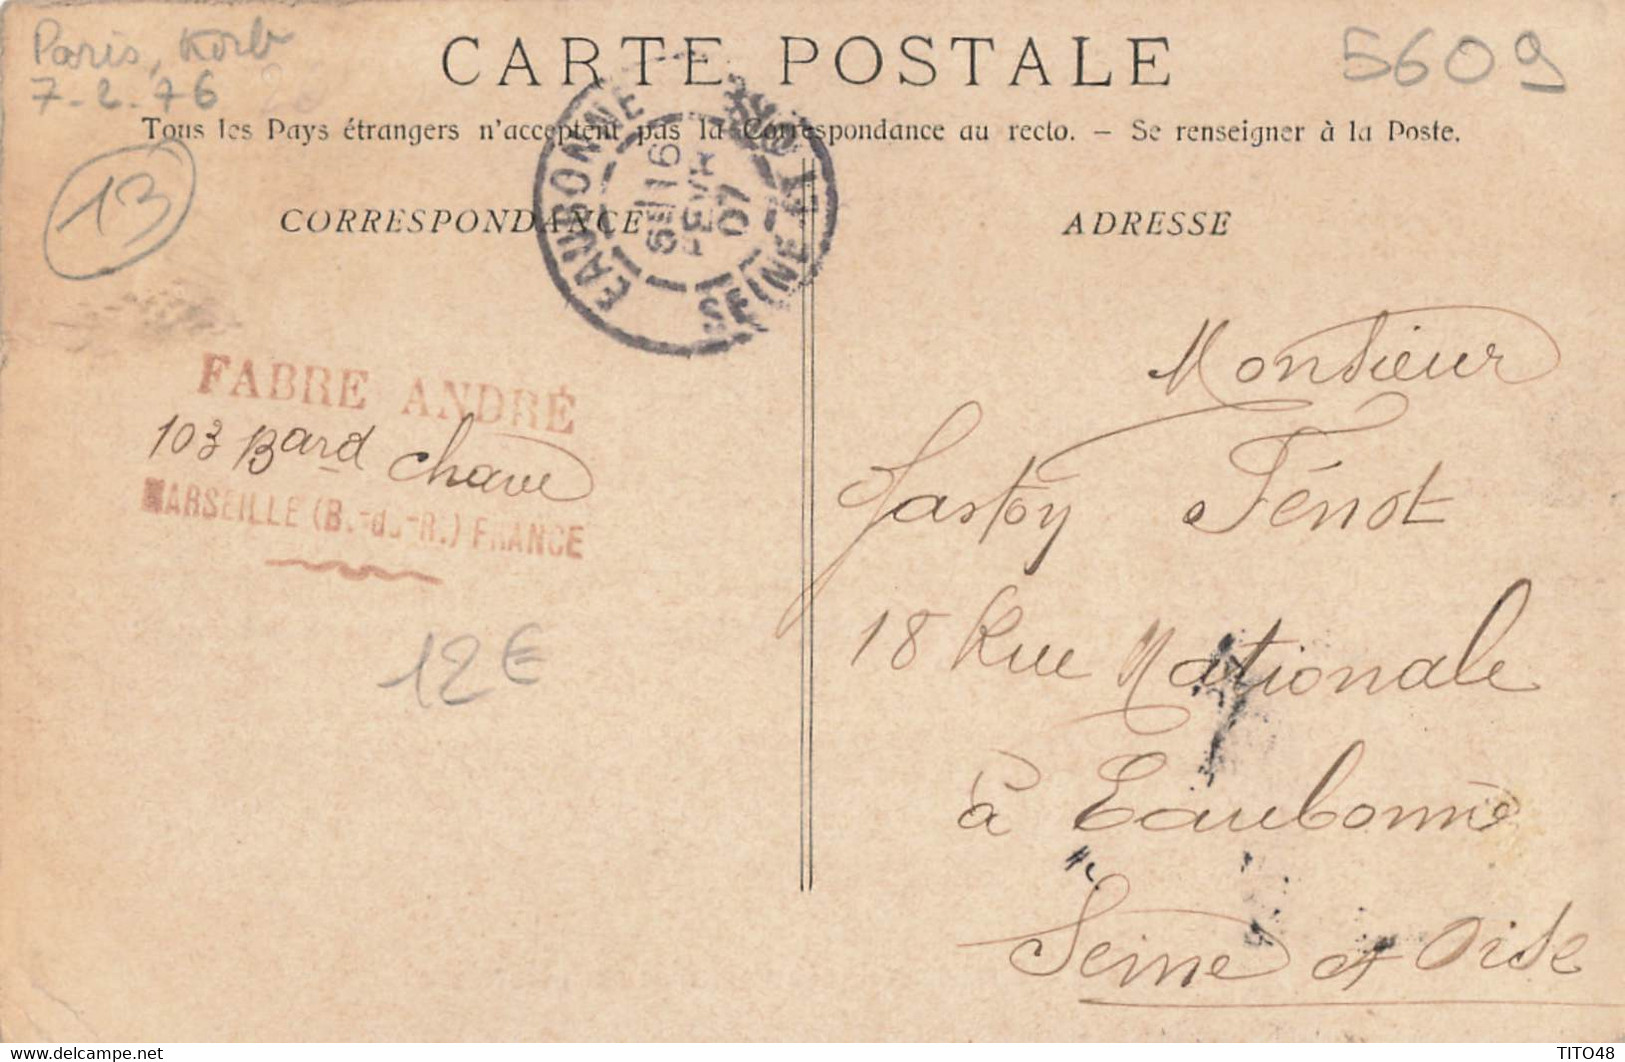 Paris, Korb
7-2-76
5609
CARTE POSTALE
Tous les Pays étrangers n'acceptent pas la Correspondance au recto. — Se renseigner à la Poste.
13
CORRESPONDANCE
ADRESSE
EAUBONNE
16
FEVR
07
SEINE
FABRE ANDRÉ
103 Bard Chave
MARSEILLE (B.-du-R.) FRANCE
12€
Monsieur
Fénot
18 Rue Nationale
à Eaubonne
Seine et Oise
TITO48